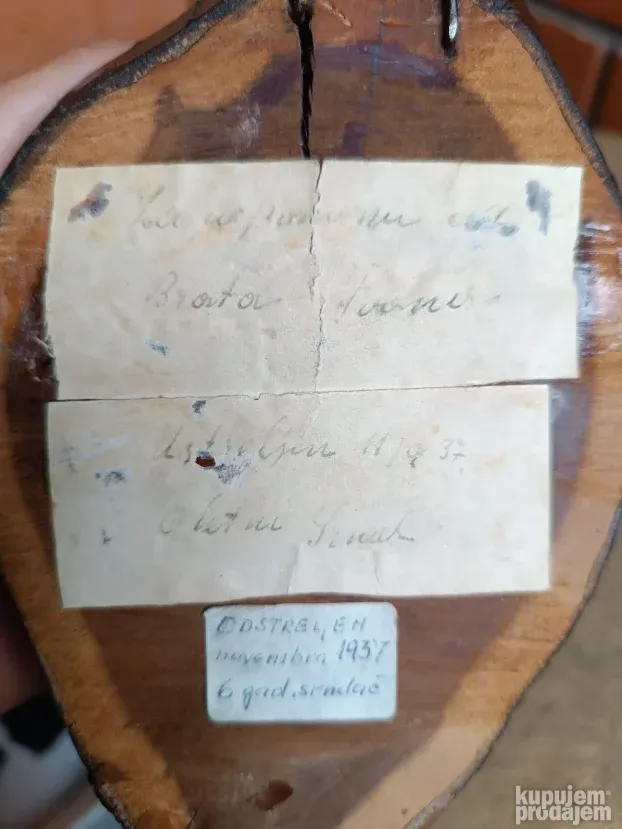 Za uspomenu od
Brata Ivana
Ustreljen 11/9 37
Srndać
ODSTRELJEN
novembra 1937
6 god. srndać
kupujem
prodajem